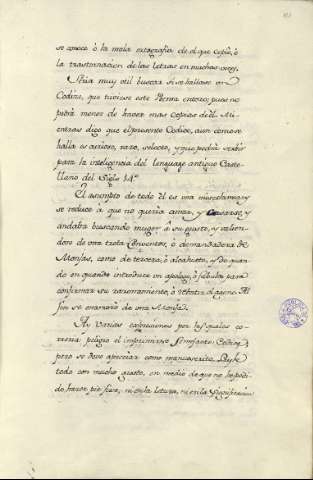 se conoce ò la mala ortografia de el que copió, ò
la trastornacion de las letras en muchas voces.
Seria muy util buscar si se hallase un
Codize, que tuviese este Poema entero; pues no
podrá menos de haver mas copias de él. Mi-
entras digo que el presente Codice, aun como se
halla es curioso, raro, selecto, y que podrá servir
para la inteligencia del lenguage antiguo Caste-
llano del Siglo 14.º
El asumpto de todo él es una miscelanea, y
se reduce à que no queria amar, y casarse, y
andaba buscando muger à su gusto, y valien-
dose de una trota Conventos, ò demandadera de
Monjas, como de tercera, ò alcahueta, y de quan-
do en quando introduce un apologo, ò fabula para
confirmar su razonamiento, ò rebatir el ageno. Al
fin se enamorò de una Monja.
Ay varias expresiones por las quales co-
rreria peligro el imprimirse semejante Codice;
pero se debe apreciar como manuscrito.
todo con mucho gusto, en medio de que no he podi-
do hacer pie fixo, ni en la letura, ni en la